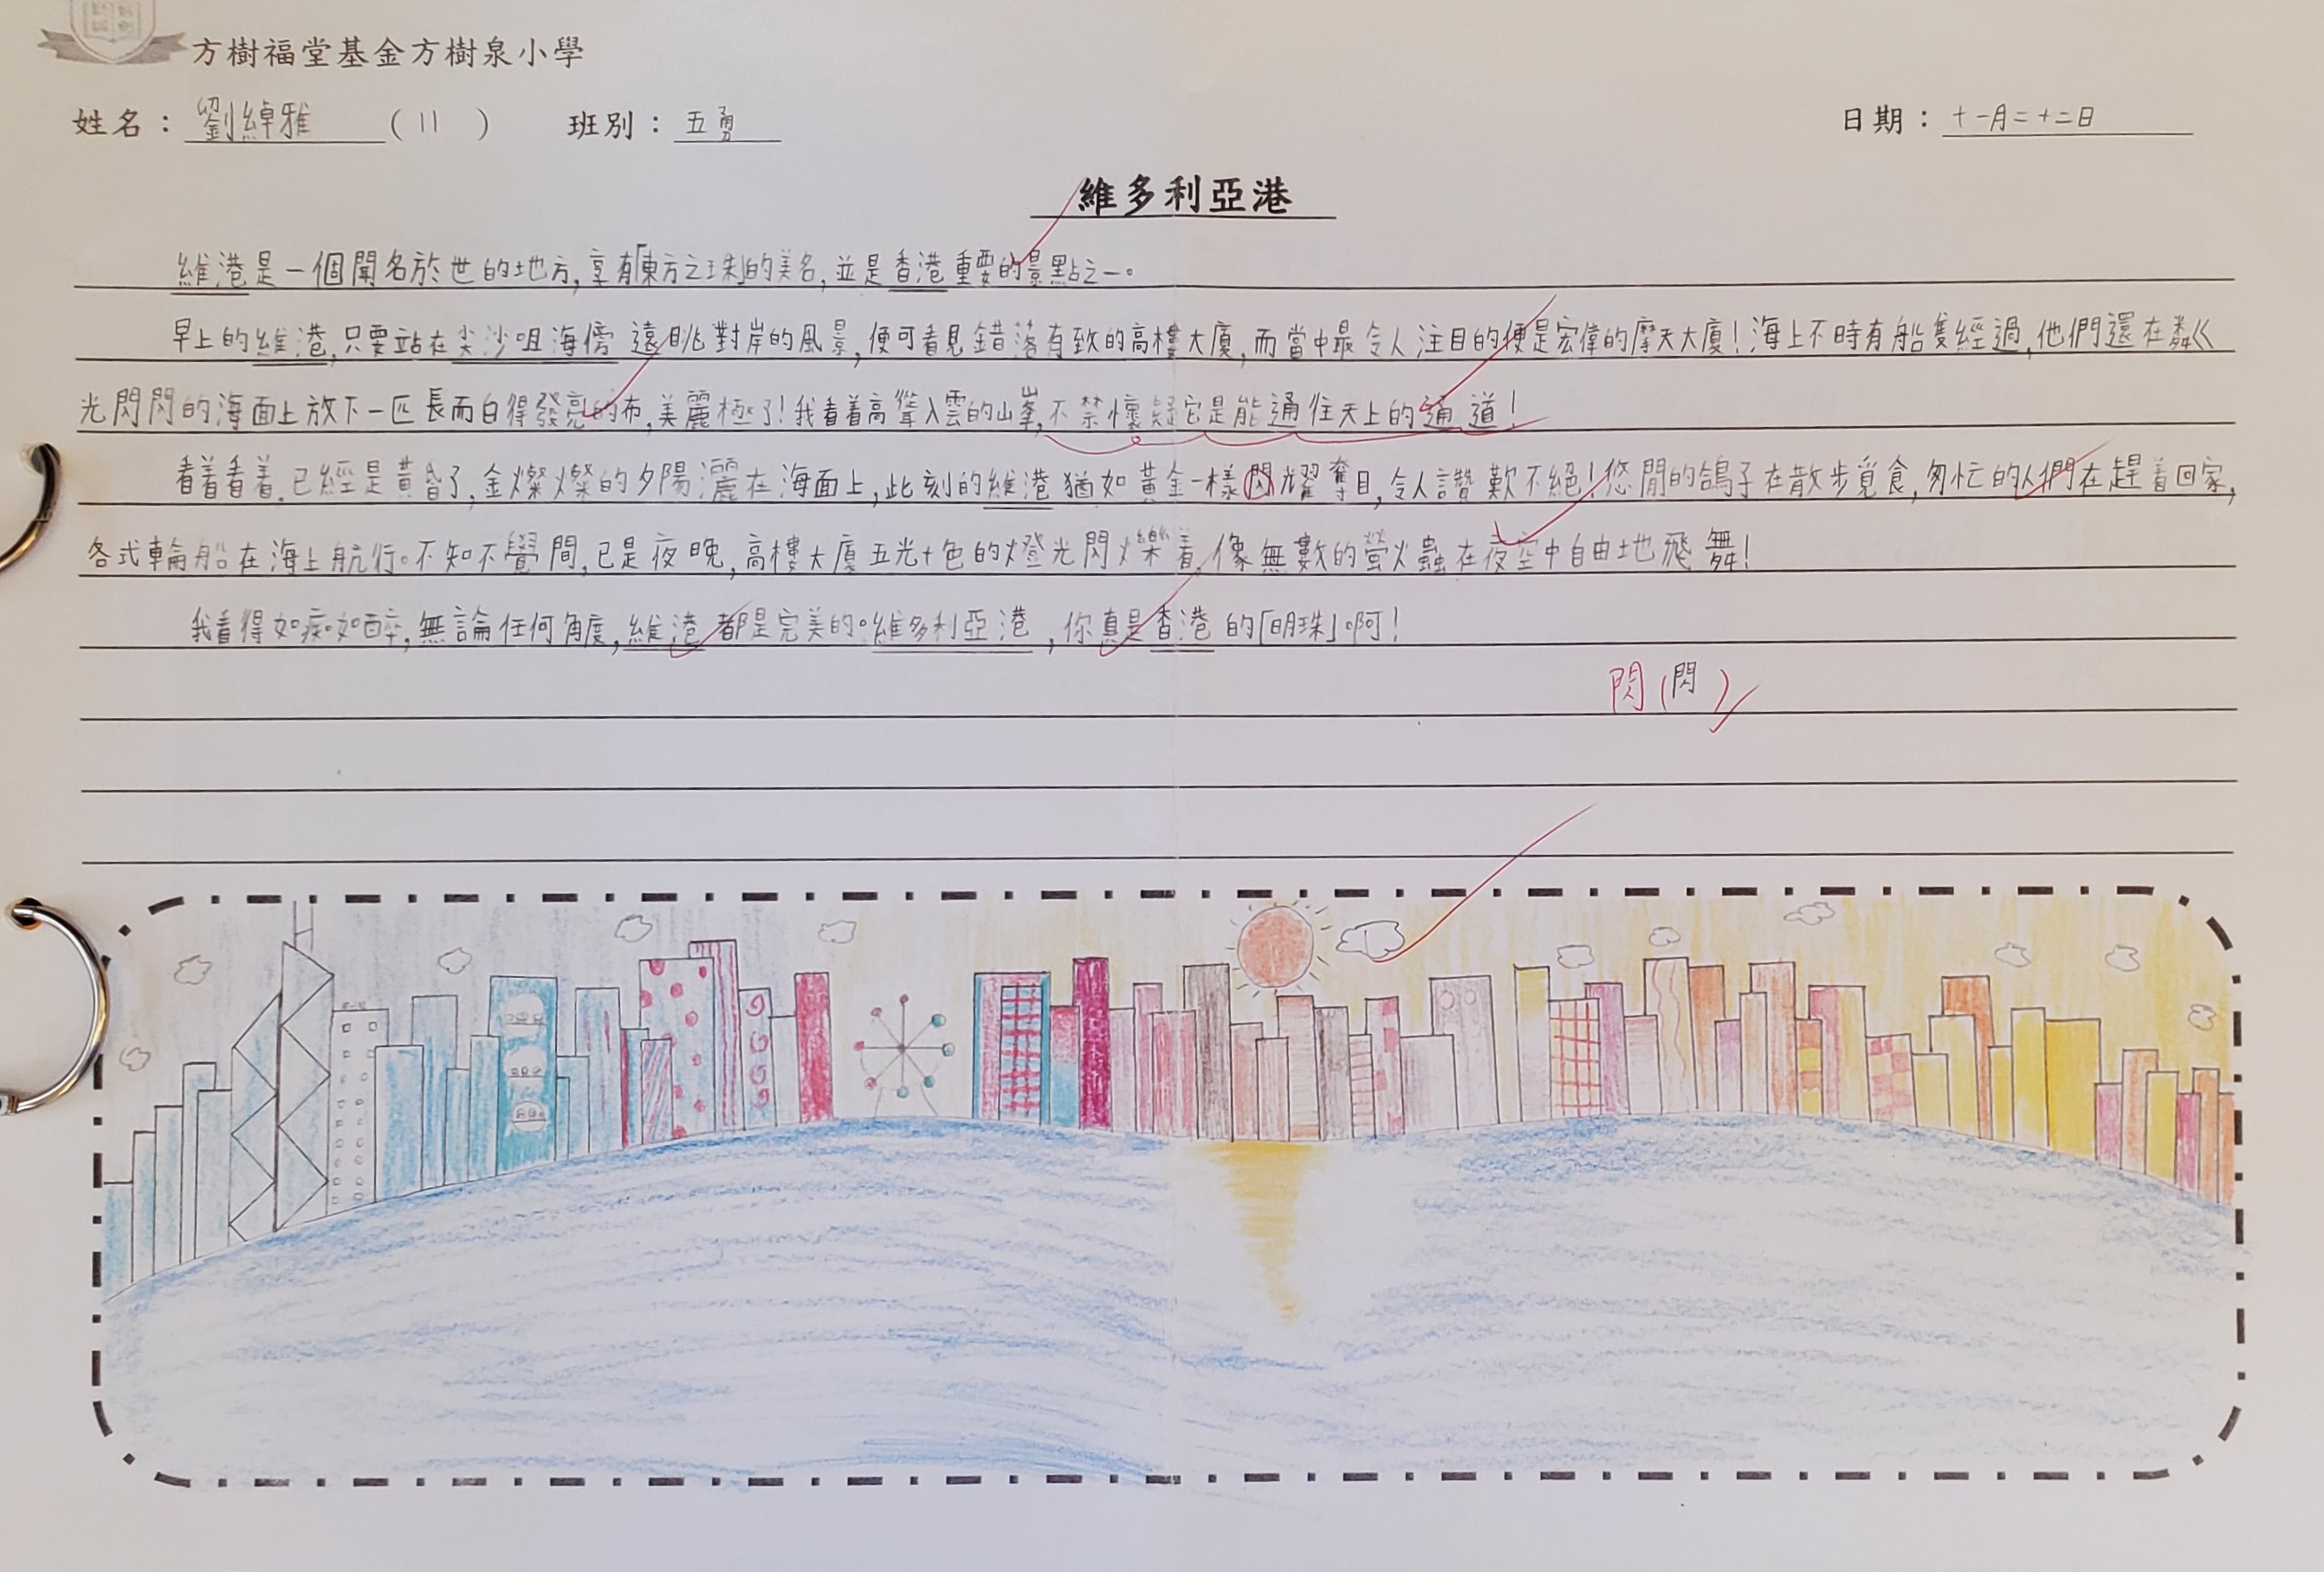 方樹福堂基金方樹泉小學
姓名：劉綽雅（11） 班別：五勇 日期：十一月二十二日
維多利亞港
維港是一個聞名於世的地方,享有「東方之珠」的美名,並是香港重要的景點之一。
早上的維港,只要站在尖沙咀海傍遠眺對岸的風景,便可看見錯落有致的高樓大廈,而當中最令人注目的便是宏偉的摩天大廈!海上不時有船隻經過,他們還在粼粼
光閃閃的海面上放下一匹長而白得發亮的布,美麗極了!我看着高聳入雲的山峯,不禁懷疑它是能通往天上的通道!
看着看着,已經是黃昏了,金燦燦的夕陽灑在海面上,此刻的維港猶如黃金一樣閃耀奪目,令人讚歎不絕!悠閒的鴿子在散步覓食,匆忙的人們在趕着回家,
各式輪船在海上航行。不知不覺間,已是夜晚,高樓大廈五光十色的燈光閃爍着,像無數的螢火蟲在夜空中自由地飛舞!
我看得如痴如醉,無論任何角度,維港都是完美的。維多利亞港,你真是香港的「明珠」啊!
閃(閃)